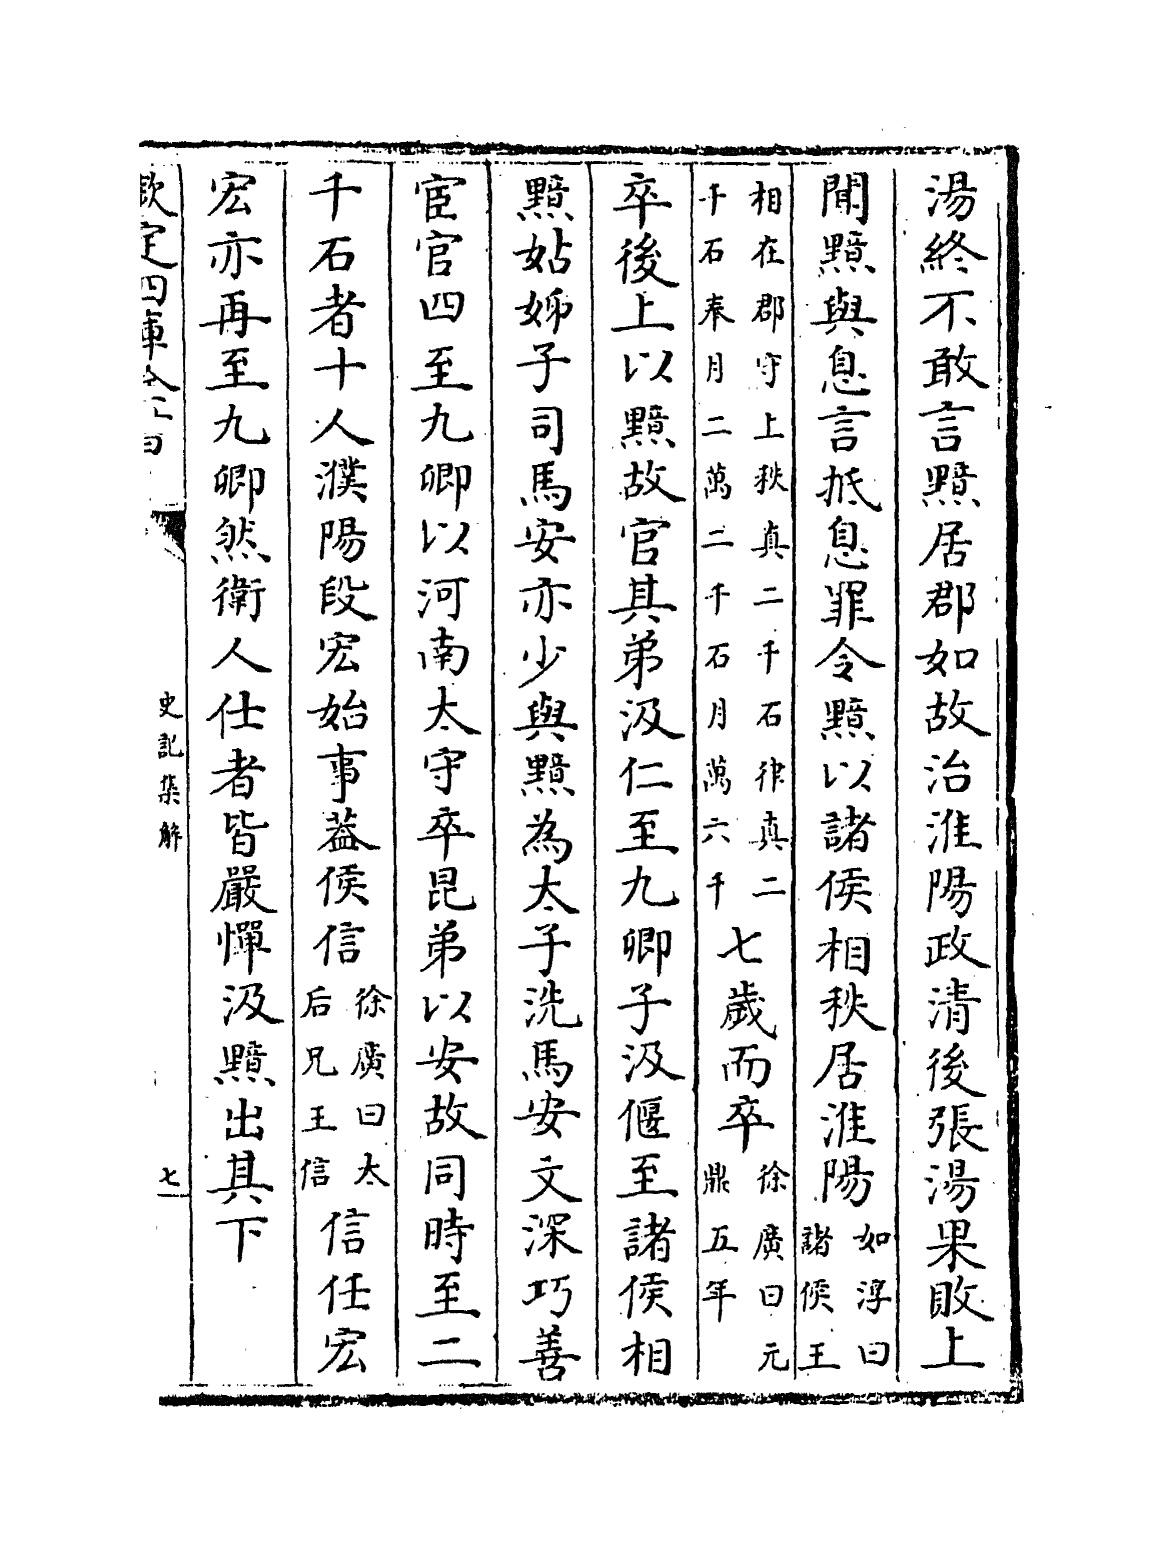 湯終不敢言黯居郡如故治淮陽政清後張湯果敗上
聞黯與息言抵息罪令黯以諸侯相秩居淮陽如淳曰諸侯王
相在郡守上秩真二千石律真二千石奉月二萬二千石月萬六千七歲而卒徐廣曰元鼎五年
卒後上以黯故官其弟汲仁至九卿子汲偃至諸侯相
黯姑姊子司馬安亦少與黯為太子洗馬安文深巧善
宦官四至九卿以河南太守卒昆弟以安故同時至二
千石者十人濮陽段宏始事蓋侯信徐廣曰太后兄王信信任宏
宏亦再至九卿然衛人仕者皆嚴憚汲黯出其下
欽定四庫全書
史記集解
七